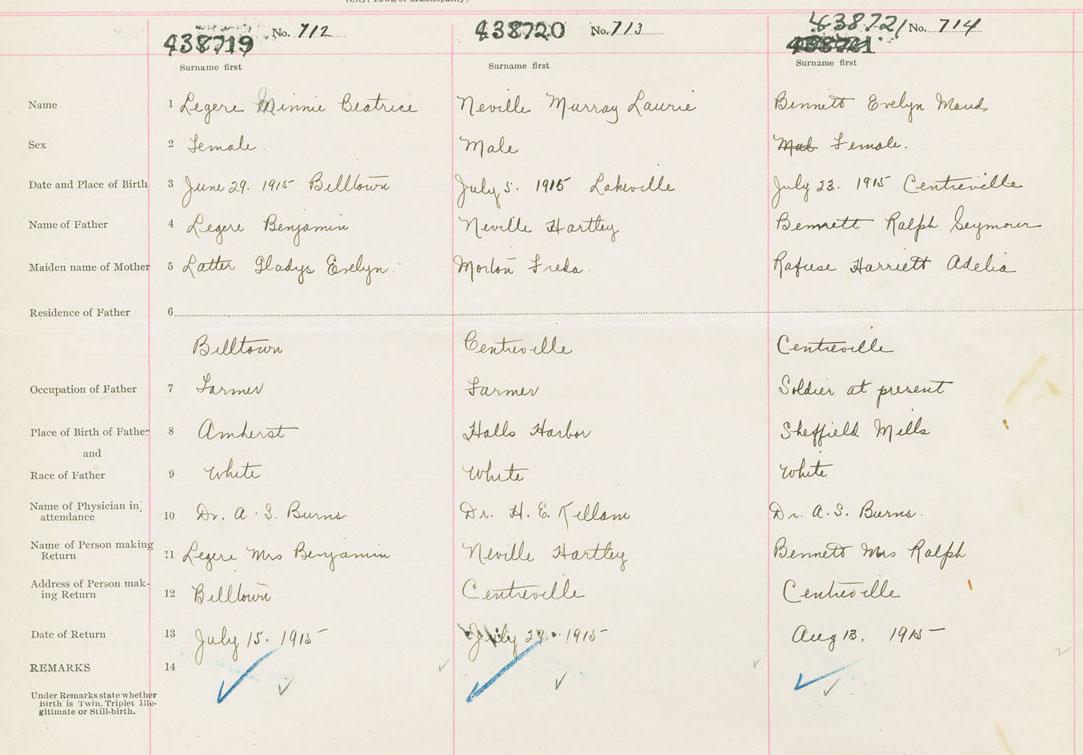 (City, Town or Municipality)
438719 No. 712 438720 No. 713 438721 No. 714
438721
Surname first Surname first Surname first
Name 1 Legere Minnie Beatrice Neville Murray Laurie Bennett Evelyn Maud
Sex 2 Female. Male Male Female.
Date and Place of Birth 3 June 29. 1915 Billtown July 5. 1915 Lakeville July 23. 1915 Centreville
Name of Father 4 Legere Benjamin Neville Hartley Bennett Ralph Seymour
Maiden name of Mother 5 Latter Gladys Evelyn. Morton Freda. Rafuse Harriett Adelia
Residence of Father 6
Billtown Centreville Centreville
Occupation of Father 7 Farmer Farmer Soldier at present
Place of Birth of Father 8 Amherst Halls Harbor Sheffield Mills
and
Race of Father 9 White White White
Name of Physician in
attendance 10 Dr. A. S. Burns Dr. H. E. Killam Dr. A. S. Burns.
Name of Person making
Return 11 Legere Mrs Benjamin Neville Hartley Bennett Mrs Ralph
Address of Person mak-
ing Return 12 Billtown Centreville Centreville
Date of Return 13 July 15. 1915 July 29. 1915 Aug 13. 1915
REMARKS 14
Under Remarks state whether
Birth is Twin, Triplet Ille-
gitimate or Still-birth.